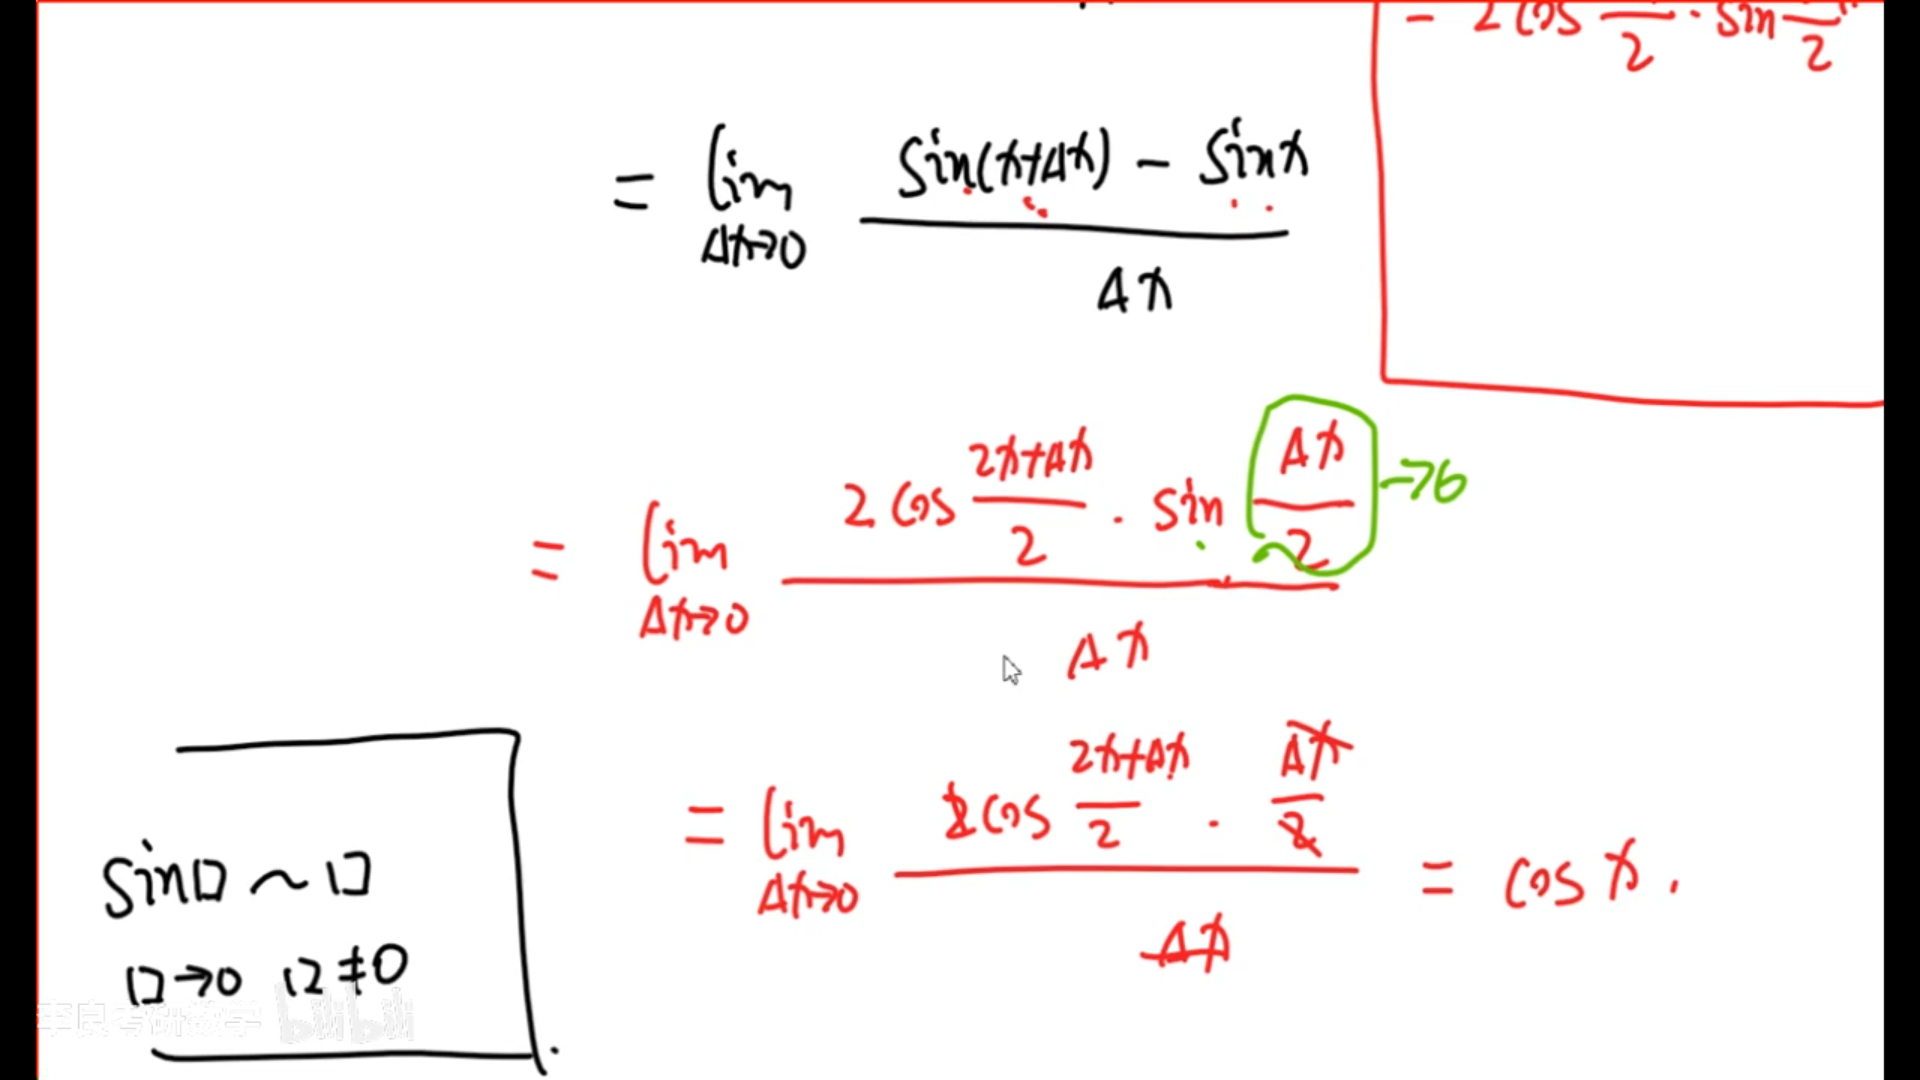 = 2 cos —/2 · sin —/2
= lim Δx→0 (sin(x+Δx) − sinx)/Δx
= lim Δx→0 (2 cos (2x+Δx)/2 · sin Δx/2)/Δx →0
= lim Δx→0 (2cos (2x+Δx)/2 · Δx/2)/Δx = cos x.
sin□ ~ □
□→0 □≠0
李良考研数学 bilibili